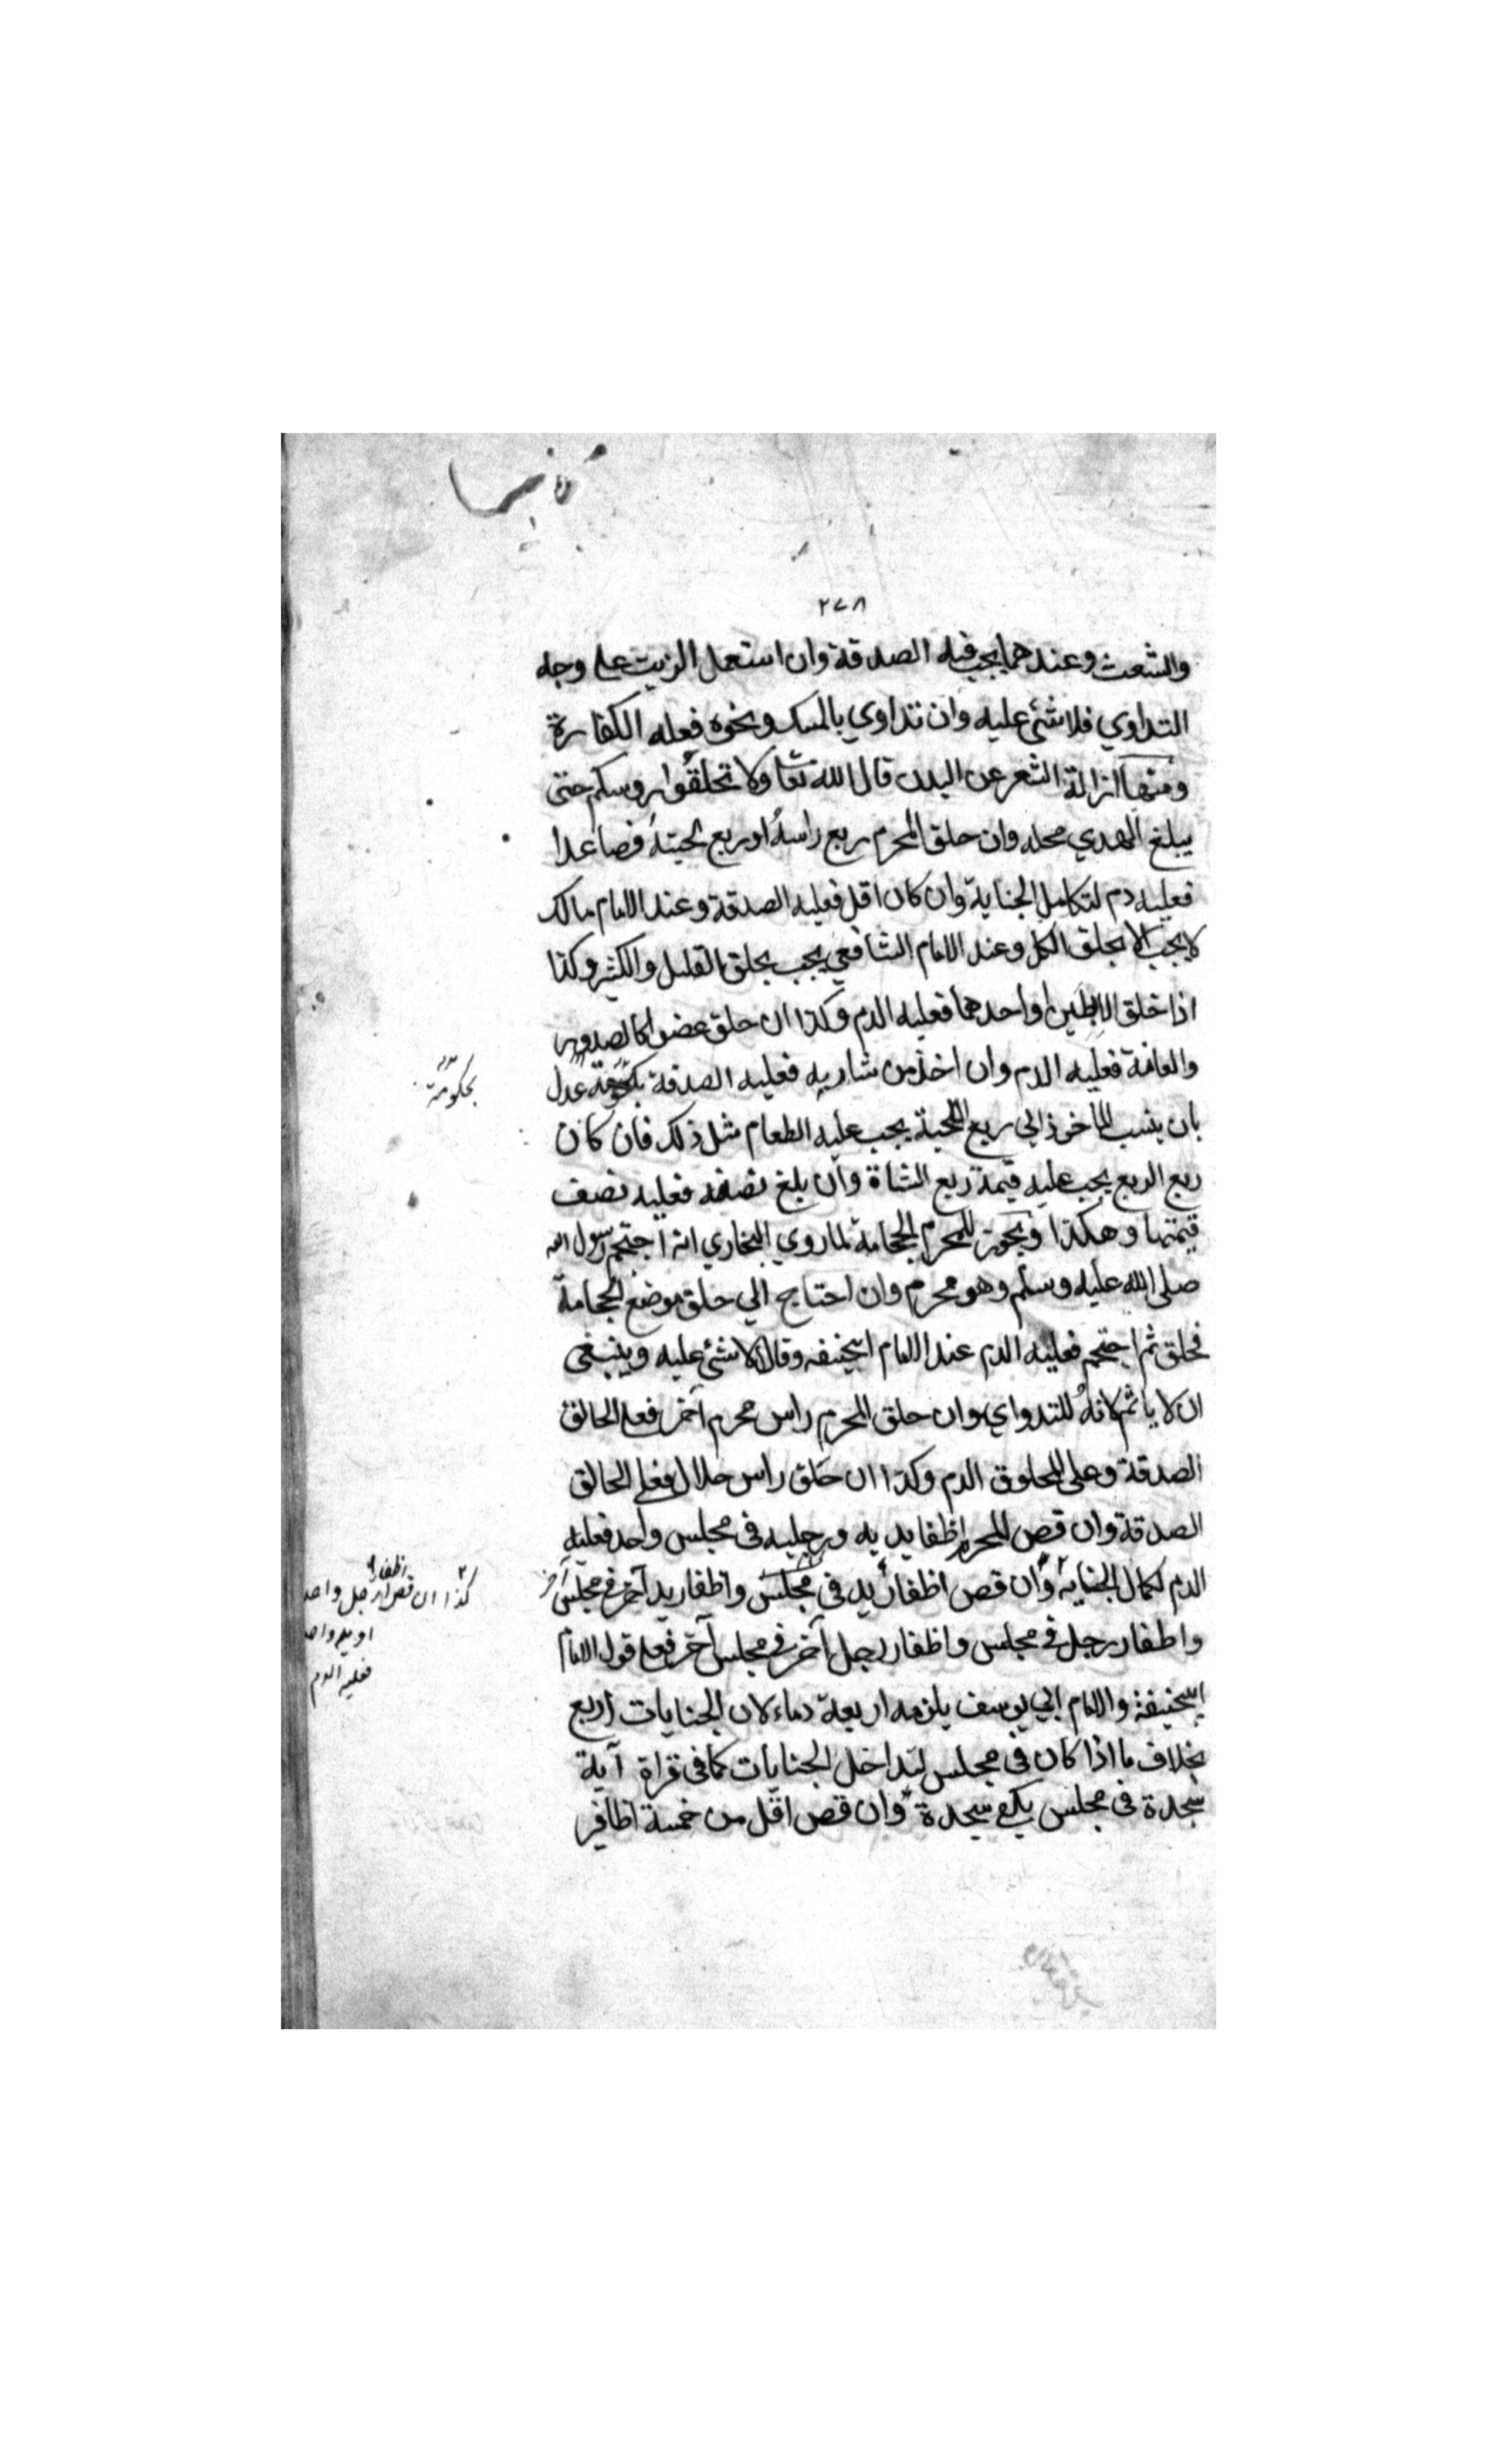 ٢٧٨
والشعث وعندهما يجب فيه الصدقة وان استعمل الزيت على وجه
التداوي فلا شئ عليه وان تداوي بالمسك ونحوه فعليه الكفارة
ومنها ازالة الشعر عن البدن قال الله تعا ولا تحلقوا روسكم حتى
يبلغ الهدي محله وان حلق المحرم ربع راسه او ربع لحيته فصاعدا
فعليه دم لتكامل الجناية وان كان اقل فعليه الصدقة وعند الامام مالك
لا يجب الا بحلق الكل وعند الامام الشافعي يجب بحلق القليل والكثير وكذا
اذا حلق الابطين او احدهما فعليه الدم وكذا ان حلق عضوا كالصدور
والعانة فعليه الدم وان اخذ من شاربه فعليه الصدقة بحكومة عدل
بحكومة
بان ينسب الماخوذ الي ربع اللحية يجب عليه الطعام مثل ذلك فان كان
ربع الربع يجب عليه قيمة ربع الشاة وان بلغ نصفه فعليه نصف
قيمتها وهكذا ويجوز للمحرم الحجامة لما روي البخاري انه احتجم رسول الله
صلى الله عليه وسلم وهو محرم وان احتاج الي حلق موضع الحجامة
فحلق ثم احتجم فعليه الدم عند الامام ابيحنيفه وقالا لا شئ عليه وينبغي
ان لا ياثم لانه للتدواي وان حلق المحرم راس محرم آخر فعلى الحالق
الصدقة وعلى المحلوق الدم وكذا ان حلق راس حلال فعلى الحالق
الصدقة وان قص المحرم اظفا يديه ورجليه في مجلس واحد فعليه
الدم لكمال الجناية وان قص اظفار يد في مجلس واظفار يد آخر في مجلس آخر
كذا ان قص اظفار رجل واحد
او يد واحد
فعليه الدم
واظفار رجل في مجلس واظفار رجل آخر في مجلس آخر فعلى قول الامام
ابيحنيفة والامام ابي يوسف يلزمه اربعة دماء لان الجنايات اربع
بخلاف ما اذا كان في مجلس لتداخل الجنايات كما في قراة آية
سجدة في مجلس يكفي سجدة وان قص اقل من خمسة اظافير